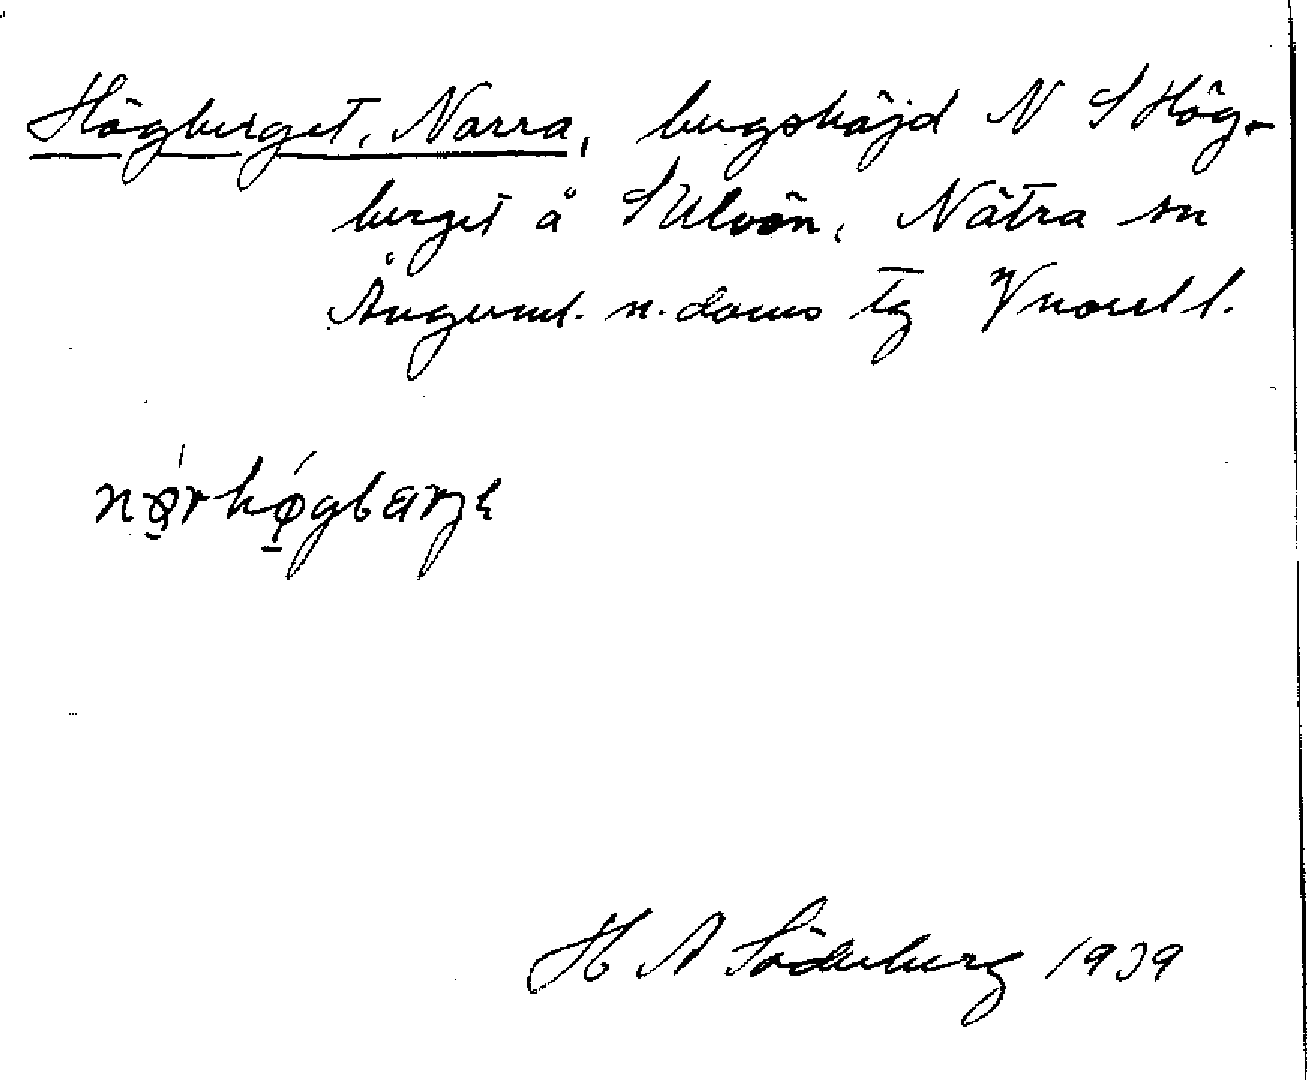 Högberget, Norra, bergshöjd N S Hög-
berget å S Ulvön, Nätra sn
Ångerml. n. doms tg Vnorrl.
nørhøgbärje
H A Söderberg 1939